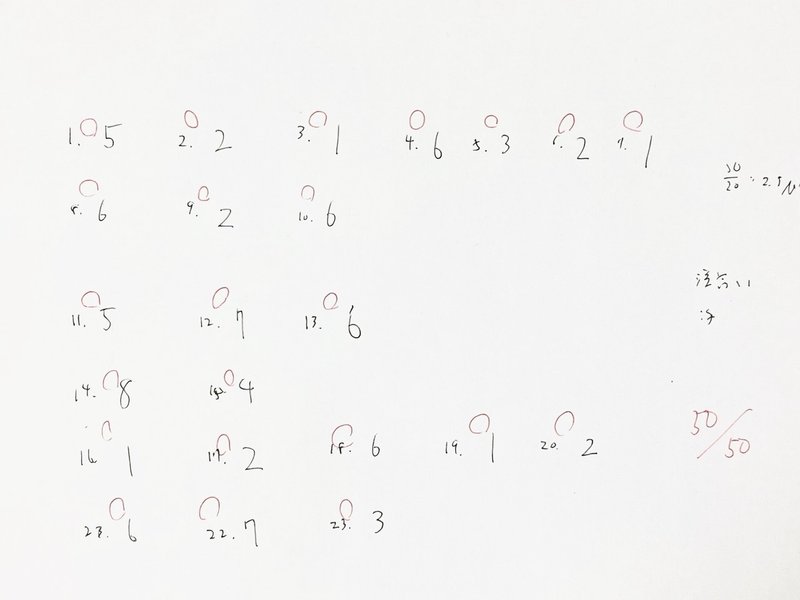 1. 5 2. 2 3. 1 4. 6 5. 3 6. 2 7. 1
50/20 : 2.5
8. 6 9. 2 10. 6
11. 5 12. 7 13. 6
14. 8 15. 4
50/50
16. 1 17. 2 18. 6 19. 1 20. 2
23. 6 22. 7 23. 3